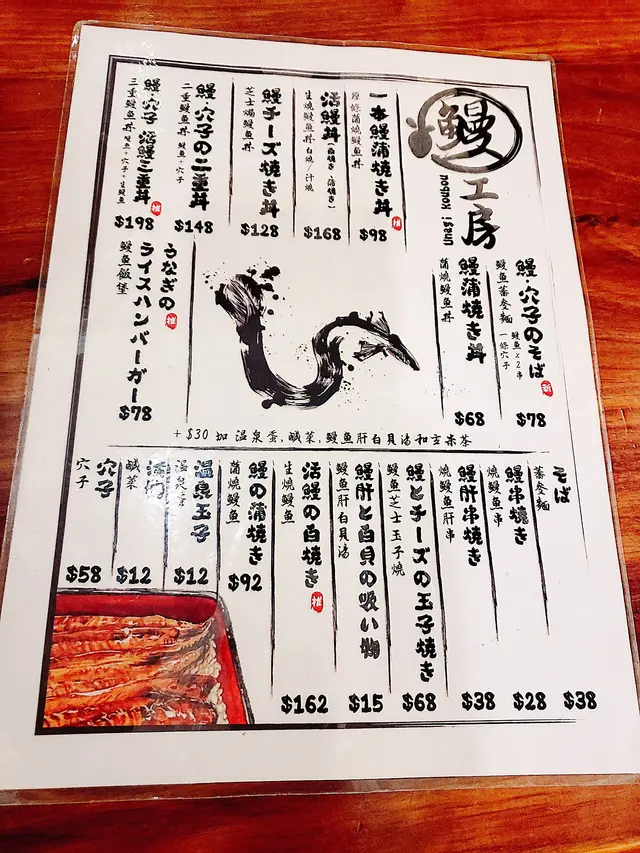 鰻工房
unagi kobou
一本鰻蒲焼き丼
推
原條蒲燒鰻魚丼
$98
活鰻丼(白焼き・蒲焼き)
生燒鰻魚丼 白燒/汁燒
$168
鰻チーズ焼き丼
芝士焗鰻魚丼
$128
鰻・穴子の二重丼
二重鰻魚丼 鰻魚+穴子
$148
鰻・穴子 活鰻三重丼
推
三重鰻魚丼 鰻魚+穴子+生鰻魚
$198
鰻・穴子のそば
新
鰻魚蕎麥麵 鰻魚x2串 一條穴子
$78
鰻蒲焼き丼
蒲燒鰻魚丼
$68
うなぎの
推
ライスハンバーガー
鰻魚飯堡
$78
+$30 加 溫泉蛋,鹹菜,鰻魚肝白貝湯和玄米茶
そば
蕎麥麵
$38
鰻串焼き
燒鰻魚串
$28
鰻肝串焼き
燒鰻魚肝串
$38
鰻とチーズの玉子焼き
鰻魚芝士玉子燒
$68
鰻肝と白貝の吸い物
鰻魚肝白貝湯
$15
活鰻の白焼き
推
生燒鰻魚
$162
鰻の蒲焼き
蒲燒鰻魚
$92
温泉玉子
溫泉蛋
$12
鹹菜
$12
穴子
穴子
$58